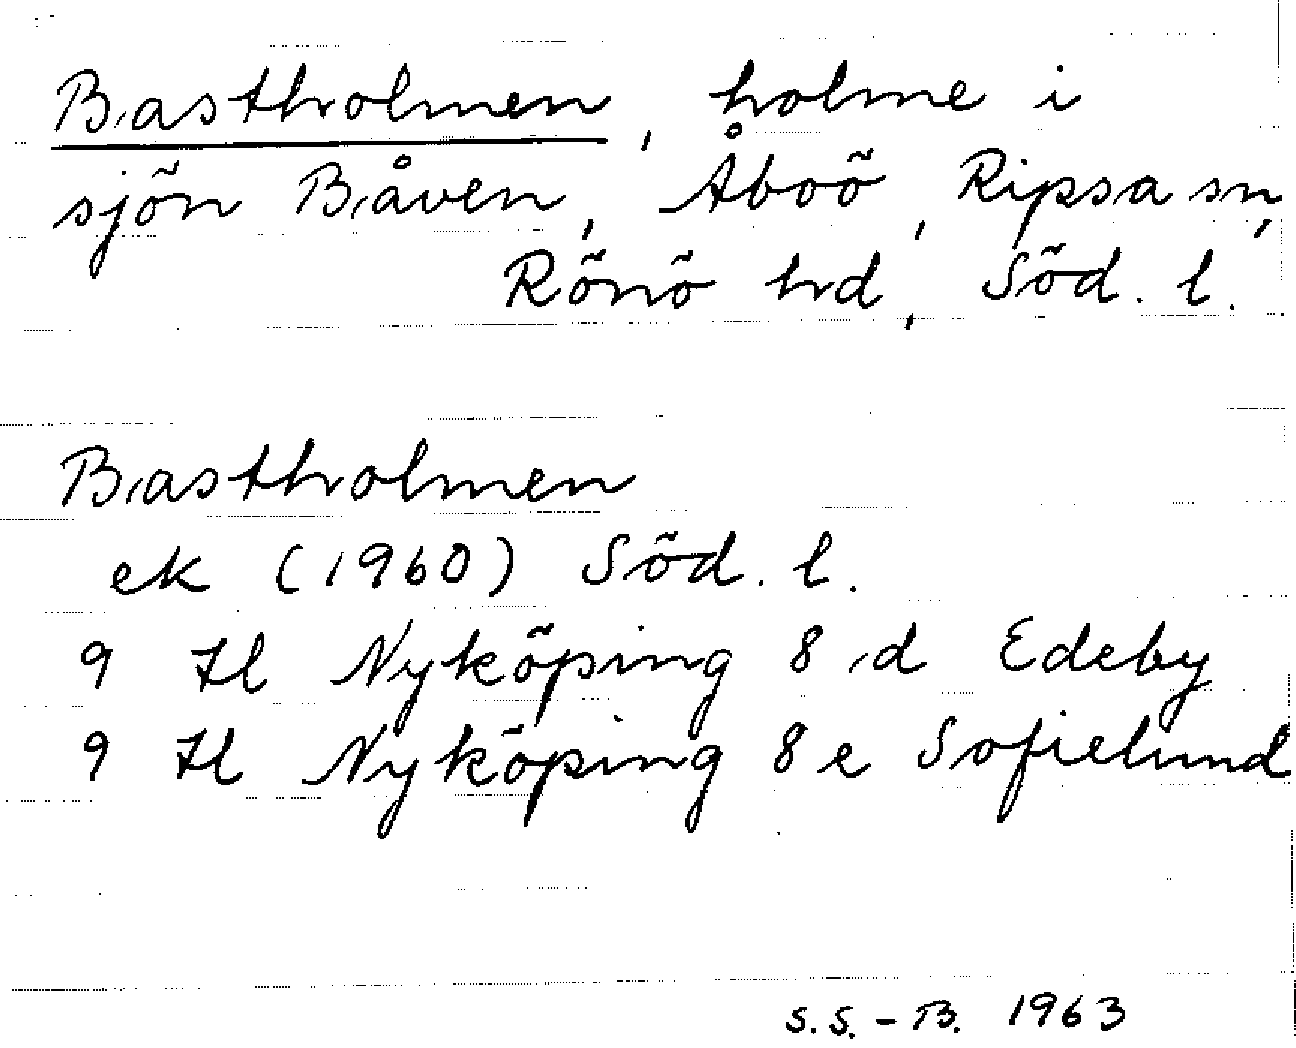 Bastholmen, holme i
sjön Båven, Åboö, Ripsa sn,
Rönö hd, Söd. l.
Bastholmen
ek (1960) Söd. l.
9 H Nyköping 8 d Edeby
9 H Nyköping 8 e Sofielund
S.S.-B. 1963